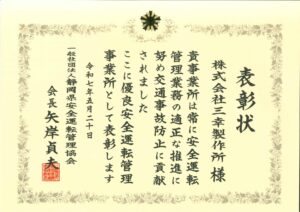 表彰状
株式会社三幸製作所様
貴事業所は常に安全運転
管理業務の適正な推進に
努め交通事故防止に貢献
されました
ここに優良安全運転管理
事業所として表彰します
令和七年五月二十日
一般社団法人静岡県安全運転管理協会
会長矢岸貞夫